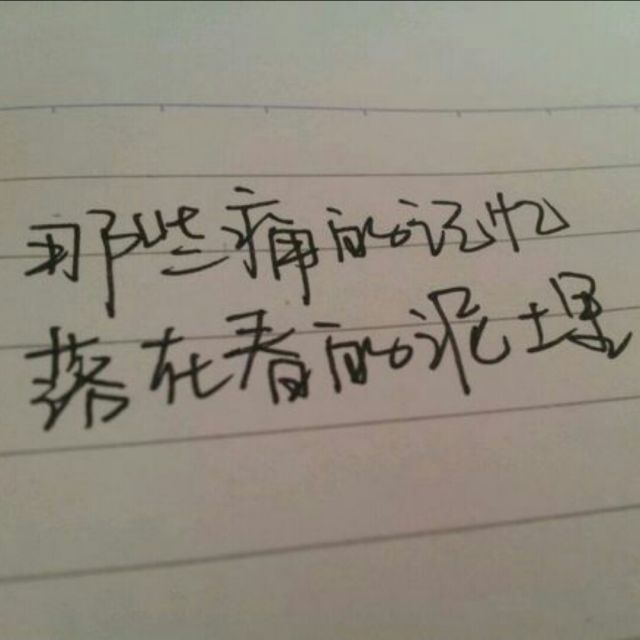 那些痛的记忆
落在春的泥土里